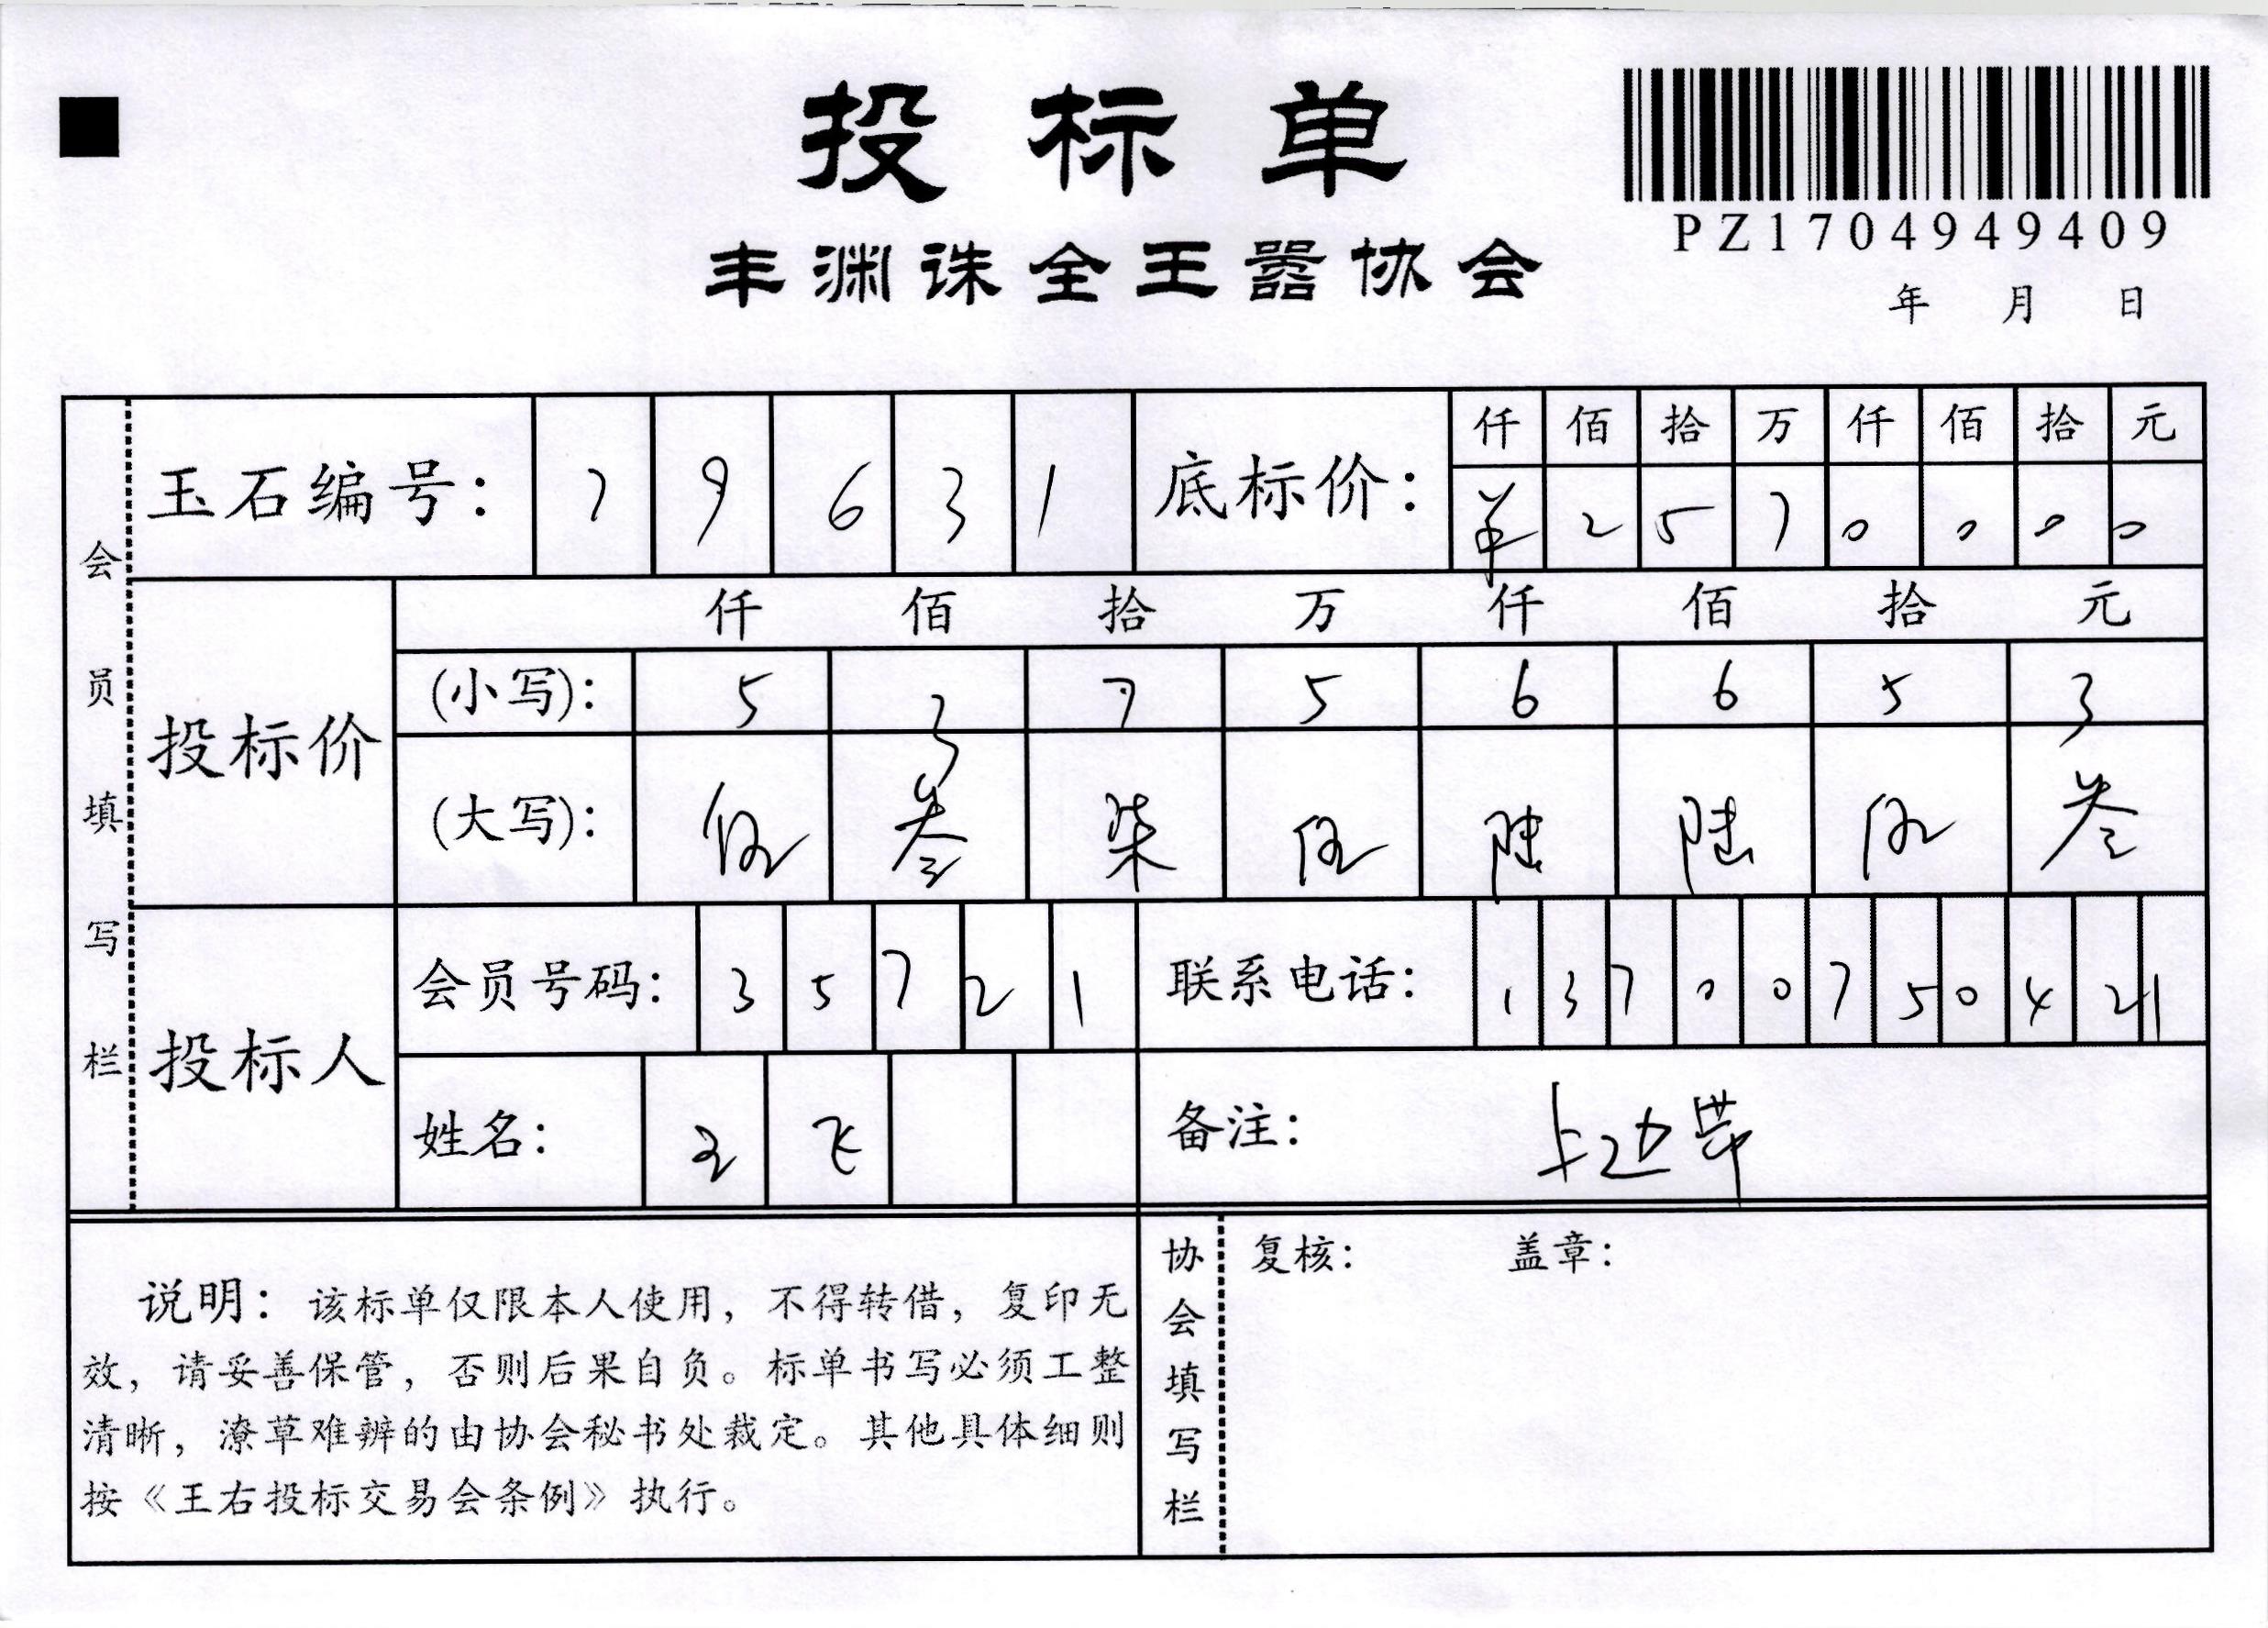 投标单
PZ1704949409
丰渊诛全王嚣协会
年 月 日
会员填写栏
玉石编号: 7 9 6 3 1
底标价: 仟 佰 拾 万 仟 佰 拾 元
羊 2 5 7 0 0 0 0
投标价
仟 佰 拾 万 仟 佰 拾 元
(小写): 5 3 7 5 6 6 5 3
(大写): 伍 叁 柒 伍 陆 陆 伍 叁
投标人
会员号码: 3 5 7 2 1
联系电话: 1 3 7 0 0 7 5 0 4 2 1
姓名: 王 飞
备注: 上边
说明: 该标单仅限本人使用, 不得转借, 复印无
效, 请妥善保管, 否则后果自负。标单书写必须工整
清晰, 潦草难辨的由协会秘书处裁定。其他具体细则
按《王右投标交易会条例》执行。
协会填写栏
复核: 盖章: